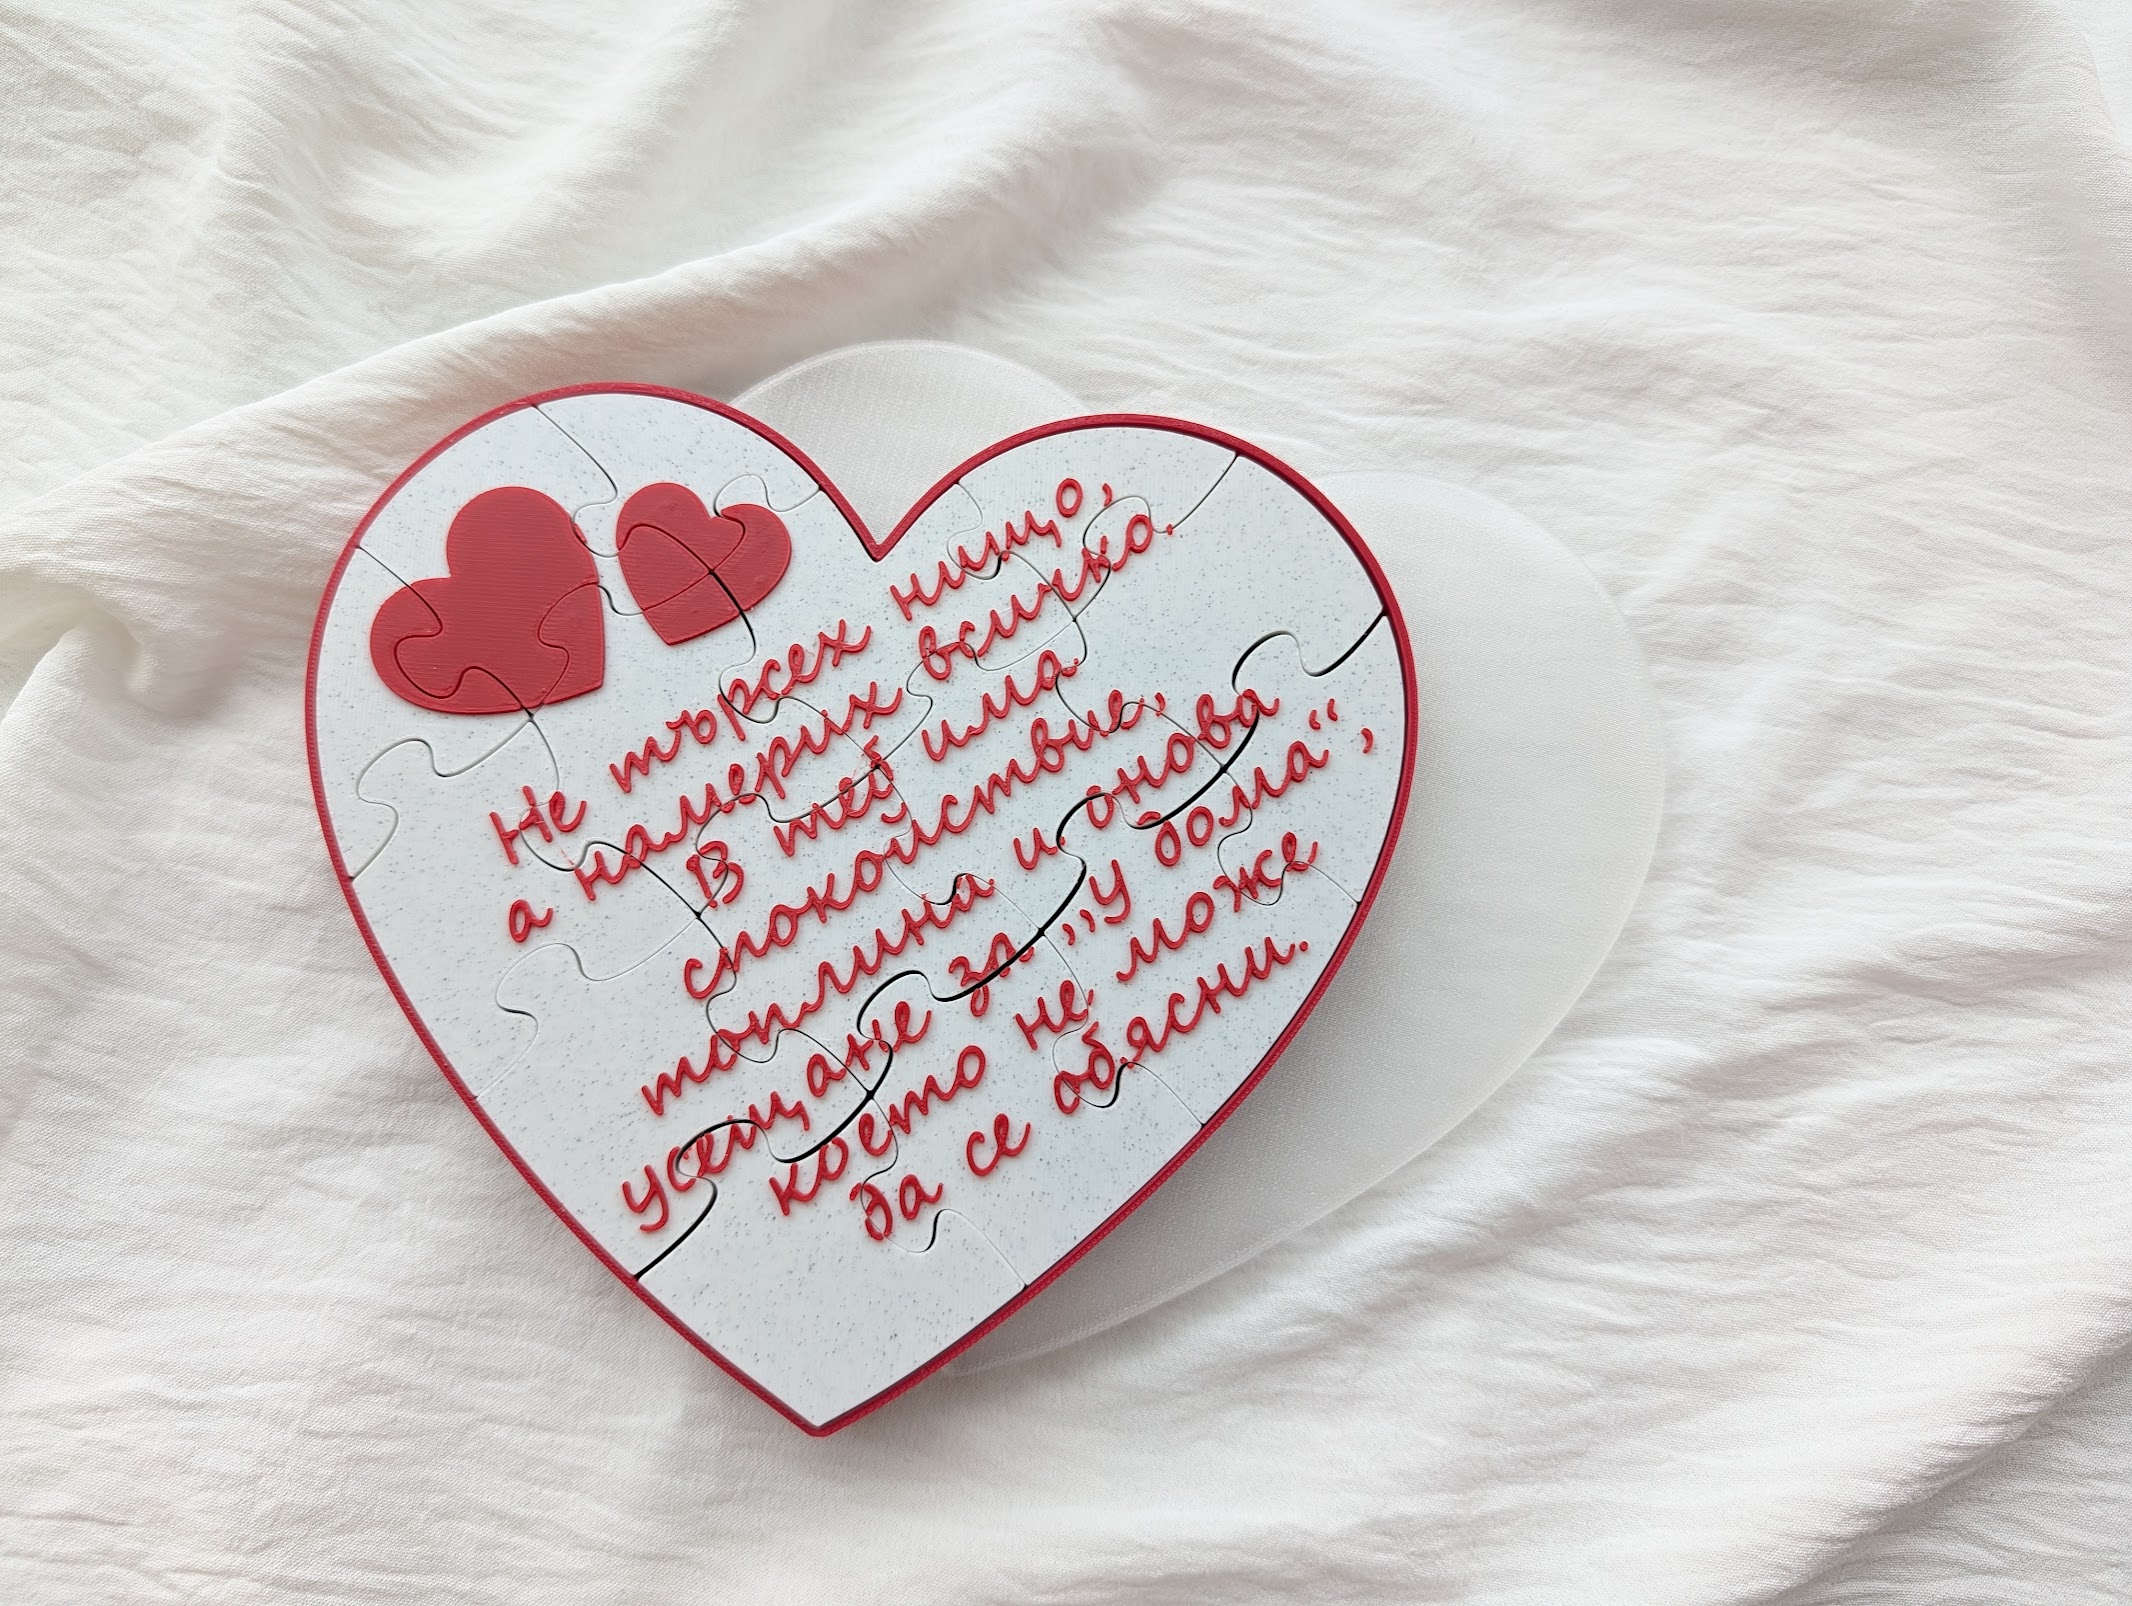 Не търсех нищо,
а намерих всичко.
В теб има
спокойствие,
топлина и онова
усещане за „У дома“,
което не може
да се обясни.